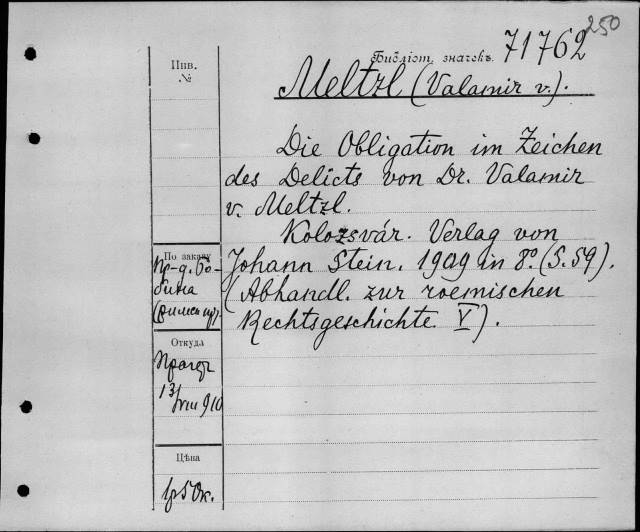 250
71762
Библіот. значекъ.
Инв.
№
Meltzl (Valamir v.).
Die Obligation im Zeichen
des Delicts von Dr. Valamir
v. Meltzl.
Kolozsvár. Verlag von
Johann Stein. 1909 in 8º. (S. 59).
(Abhandl. zur roemischen
Rechtsgeschichte V).
По заказу
Пр-д. Бо-
бина
Откуда
Прагер
13/VIII 910
Цѣна
1р50к.